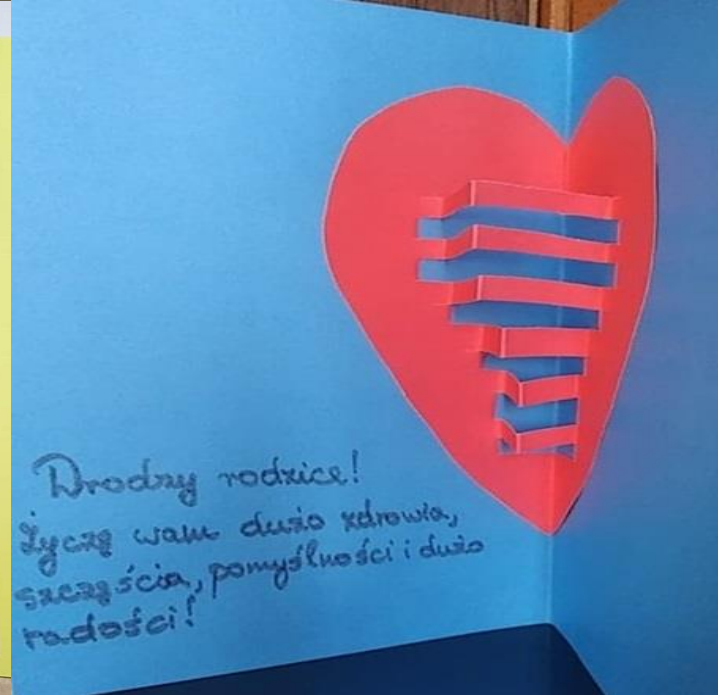 Drodzy rodzice!
Życzę wam dużo zdrowia,
szczęścia, pomyślności i dużo
radości!